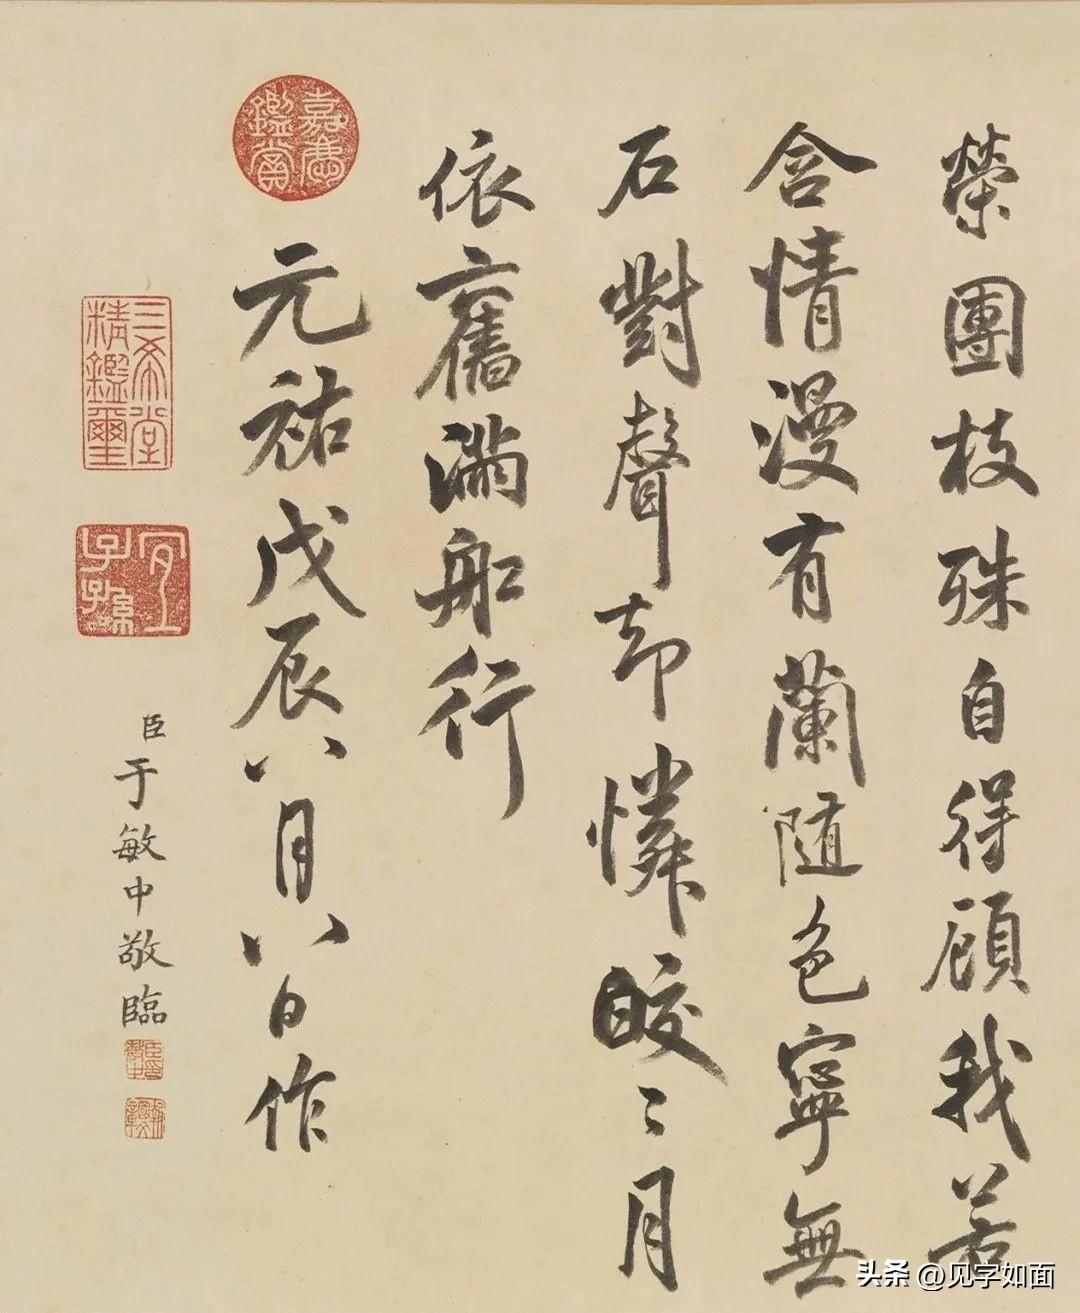 榮團枝殊自得顧我若
含情漫有蘭隨色寧無
石對聲却憐皎〻月
依舊滿船行
嘉慶鑑賞
元祐戊辰八月八日作
三希堂精鑑璽
宜子孫
臣于敏中敬臨
头条 @见字如面